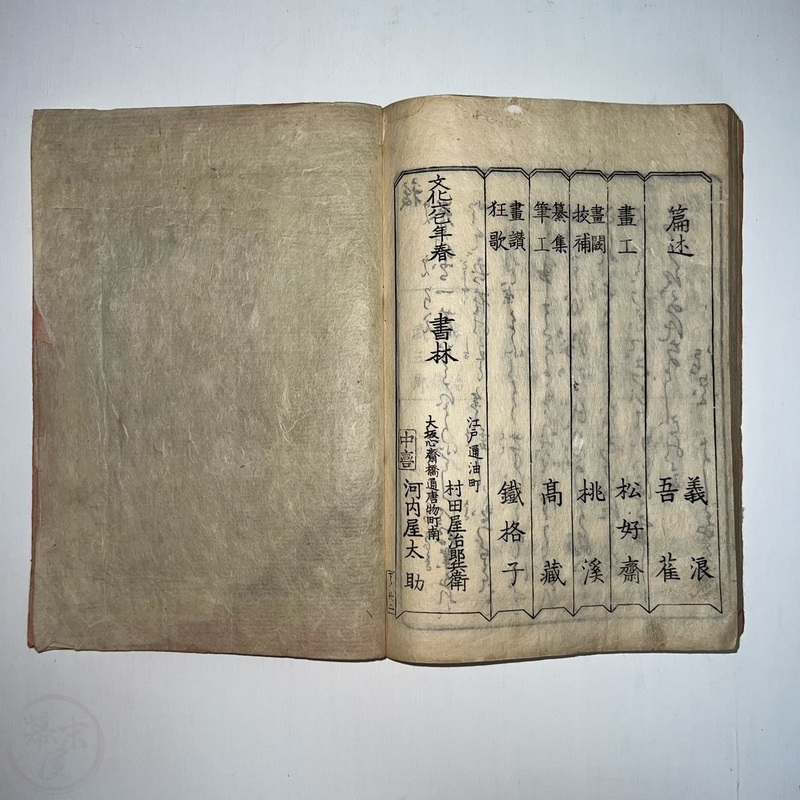 篇述 義浪
吾萑
畫工 松好齋
畫闕
按補 桃溪
纂集
筆工 髙藏
畫讃
狂歌 鐵格子
江戸通油町
村田屋治郎兵衛
文化六巳年春 書林
大坂心齋橋通唐物町南
中喜 河内屋太助
幕末屋